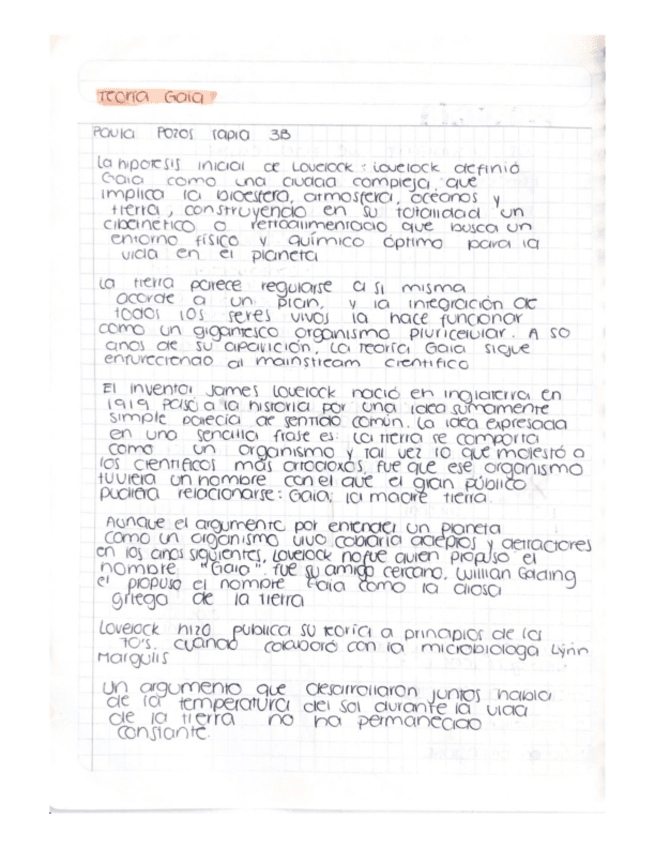 Teoría Gaia
Paula Pozos Tapia 3B
La hipotesis inicial de Lovelock: Lovelock definió
Gaia como una ciudad compleja, que
implica la bioesfera, atmosfera, océanos y
tierra, construyendo en su totalidad un
cibeinetico o retroalimentacio que busca un
entorno físico y químico óptimo para la
vida en el planeta
La tierra parece regularse a si misma
acorde a un plan, y la integración de
todos los seres vivos la hace funcionar
como un gigantesco organismo pluricelular. A 50
anos de su aparición, La teoría Gaia sigue
enfureciendo al mainstream cientifico
El inventor James Lovelock nació en inglaterra en
1919 Pasó a la historia por una idea sumamente
simple parecía de sentido común. La idea expresada
en una sencilla frase es: La tierra se comporta
como un organismo y tal vez lo que molestó a
los cientificos más ortodoxos, fue que ese organismo
tuviera un nombre con el que el gran público
pudiera relacionarse: Gaia; la madre tierra.
Aunque el argumento por entender un planeta
como un organismo vivo cobraria adeptos y detractores
en los anos siguientes, Lovelock no fue quien propuso el
nombre "Gaia". fue su amigo cercano, Willian Golding
el propuso el nombre Gaia como la diosa
griega de la tierra
Lovelock hizo publica su teoría a principios de los
70's, cuando colaboró con la microbiologa Lynn
Margulis
Un argumento que desarrollaron juntos habla
de la temperatura del sol durante la vida
de la tierra no ha permanecido
constante.